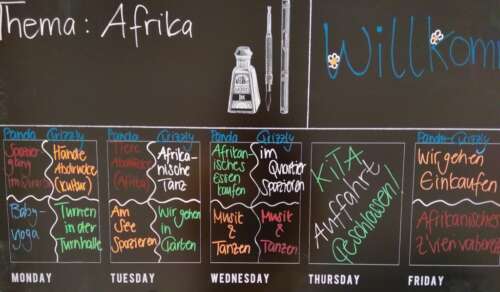 Thema: Afrika
Willkomm
Panda Grizzly
Spazier
gang
im Quartier
Hände
Abdrücke
(Kultur)
Baby-
yoga
Turnen
in der
Turnhalle
Panda Grizzly
Tiere
(Afrika)
Afrika-
nische
Tanz
Am
See
Spazieren
Wir gehen
in Garten
Panda Grizzly
Afrikan-
isches
Essen
kaufen
im
Quartier
Spazieren
Musik
&
Tanzen
Musik
&
Tanzen
KiTA
Auffahrt
Geschlassen!
Panda Grizzly
Wir gehen
Einkaufen
Afrikanisches
z'vieri vorberei
MONDAY
TUESDAY
WEDNESDAY
THURSDAY
FRIDAY